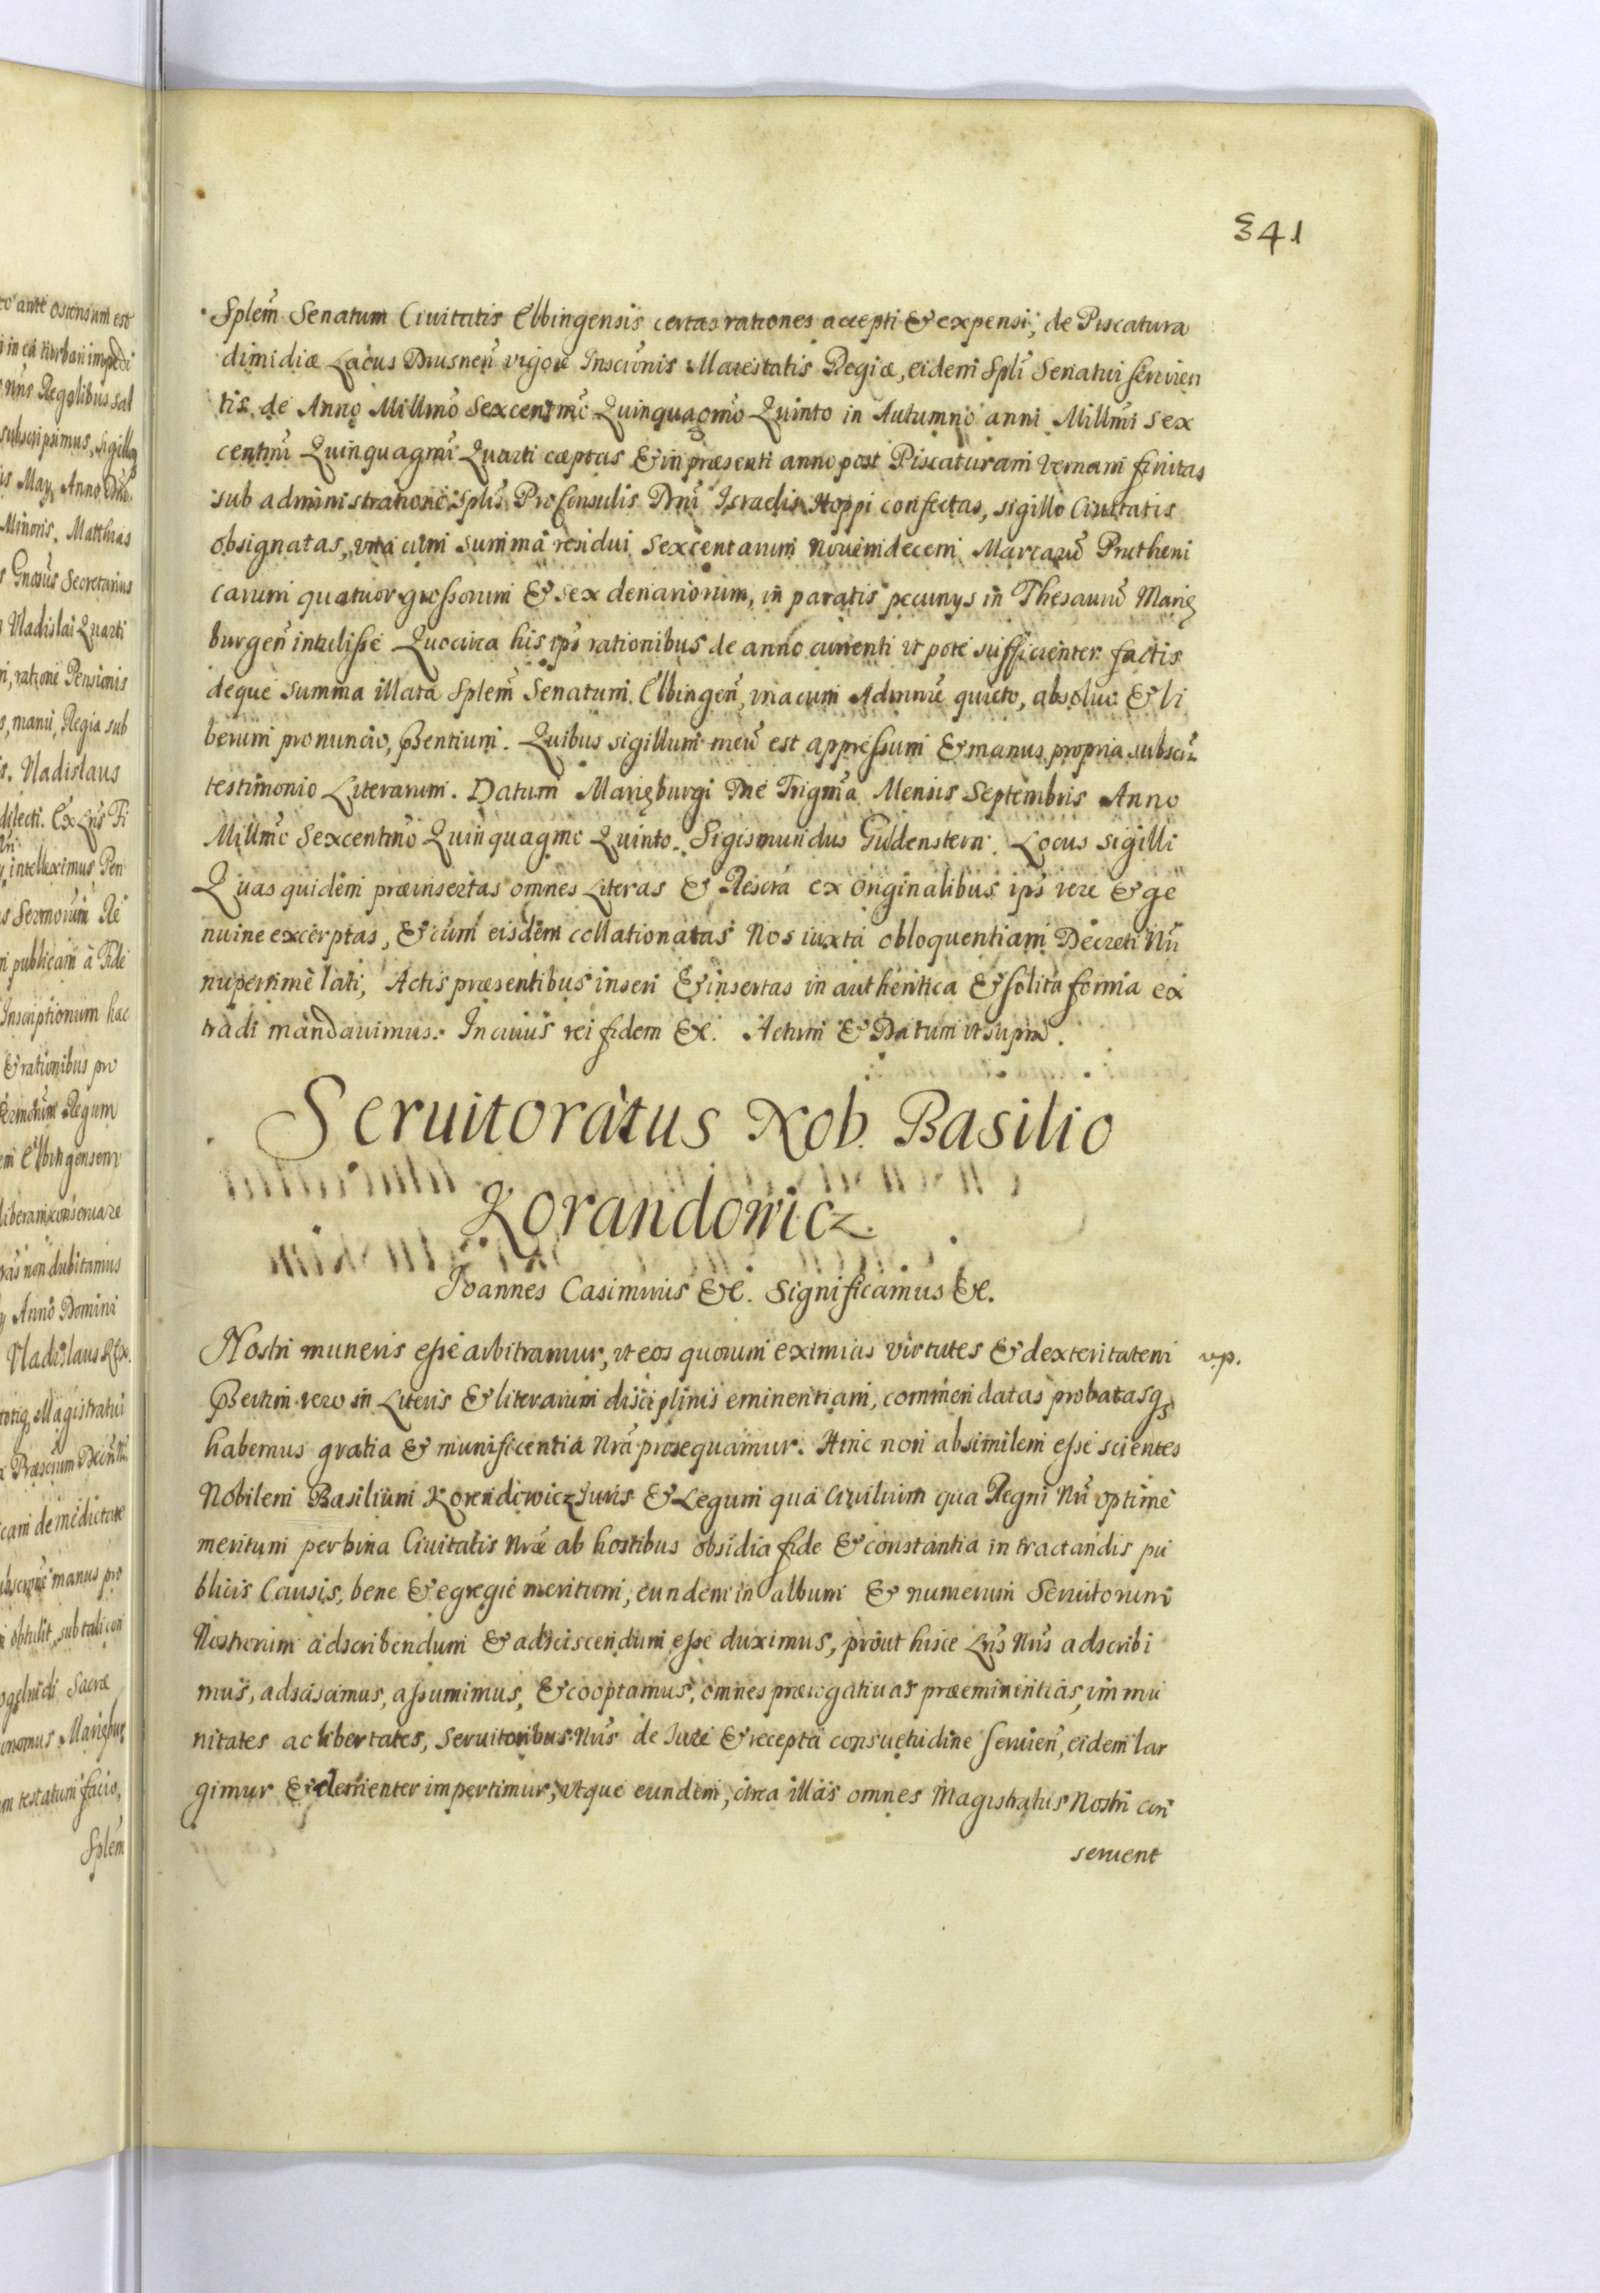 341
Splem̃ Senatum Ciuitatis Elbingensis certas rationes accepti & expensi, de Piscatura
dimidiæ Lacus Drusneñ vigore Inscriõnis Maiestatis Regiæ, eidem Spli Senatui seruien
tis, de Anno Millmo Sexcentmo Quinquagmo Quinto in Autumno anni Millmi sex
centmi Quinquagmi Quarti cæptas & in præsenti anno post Piscaturam vernam finitas
sub administratione Splis Pro Consulis Dni Israelis Hoppi confectas, sigillo Ciuitatis
obsignatas, vna cum summa residui sexcentarum Nouemdecem Marcarũ Prutheni
carum quatuor grossorum & sex denariorum, in paratis pecunys in Thesaurũ Marię
burgeñ intulisse Quocirca his ips rationibus de anno currenti vt pote sufficienter factis
deque summa illata Splem̃ Senatum Elbingeñ, vna cum Admnre quieto, absoluo & li
berum pronuncio, Pñtium. Quibus sigillum meũ est appressum & manus propria subscr
testimonio Literarum. Datum Marięburgi Die Trigma Mensis Septembris Anno
Millmo Sexcentmo Quinquagmo Quinto. Sigismundus Guldenstern. Locus sigilli
Quas quidem præinsertas omnes Literas & Rescrã ex originalibus ips vere & ge
nuine excerptas, & cum eisdem collationatas Nos iuxta obloquentiam Decreti Nri
nuperrime lati, Actis præsentibus inseri & insertas in authentica & solita forma ex
tradi mandauimus. In cuius rei fidem &c. Actum & Datum vt supra.
Seruitoratus Nob. Basilio
Korandowicz.
Ioannes Casimirus &c. Significamus &c.
Nostri muneris esse arbitramur, vt eos quorum eximias virtutes & dexteritatem vp.
Pñertim vero in Literis & literarum disciplinis eminentiam, commendatas probatasq
habemus gratia & munificentia Nrã prosequamur. Hinc non absimilem esse scientes
Nobilem Basilium Korendowicz Iuris & Legum qua Ciuilium qua Regni Nri optime
meritum per bina Ciuitatis Nræ ab hostibus obsidia fide & constantia in tractandis pu
blicis Causis, bene & egregie meritum, eundem in album & numerum Seruitorum
Nostrorum adscribendum & adsciscendum esse duximus, prout hisce Lris Nris adscribi
mus, adsciscimus, assumimus, & cooptamus, omnes prærogatiuas præeminentias, immu
nitates ac libertates, Seruitoribus Nris de Iure & recepta consuetudine seruieñ, eidem lar
gimur & clementer impertimur, vtque eundem, circa illas omnes Magistratus Nostri con
seruent